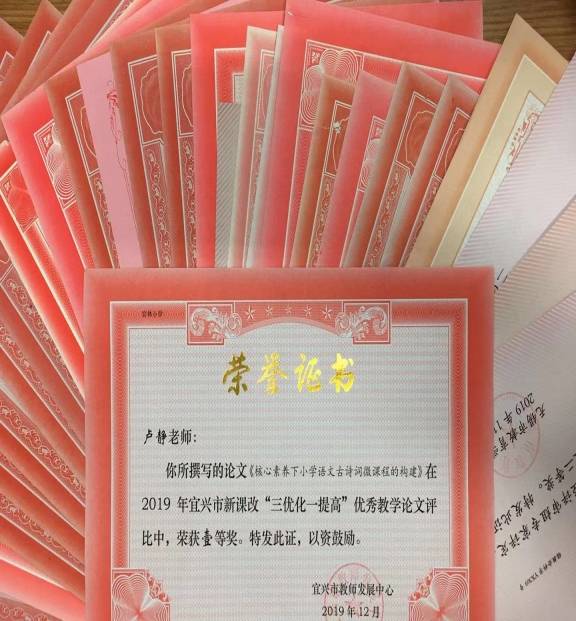 官林小学
荣誉证书
卢静老师:
你所撰写的论文《核心素养下小学语文古诗词微课程的构建》在
2019 年宜兴市新课改“三优化一提高”优秀教学论文评
比中,荣获壹等奖。特发此证,以资鼓励。
宜兴市教师发展中心
2019 年 12 月
二等奖。
评审组专家评定
特发此证
无锡市教育
2019 年 1